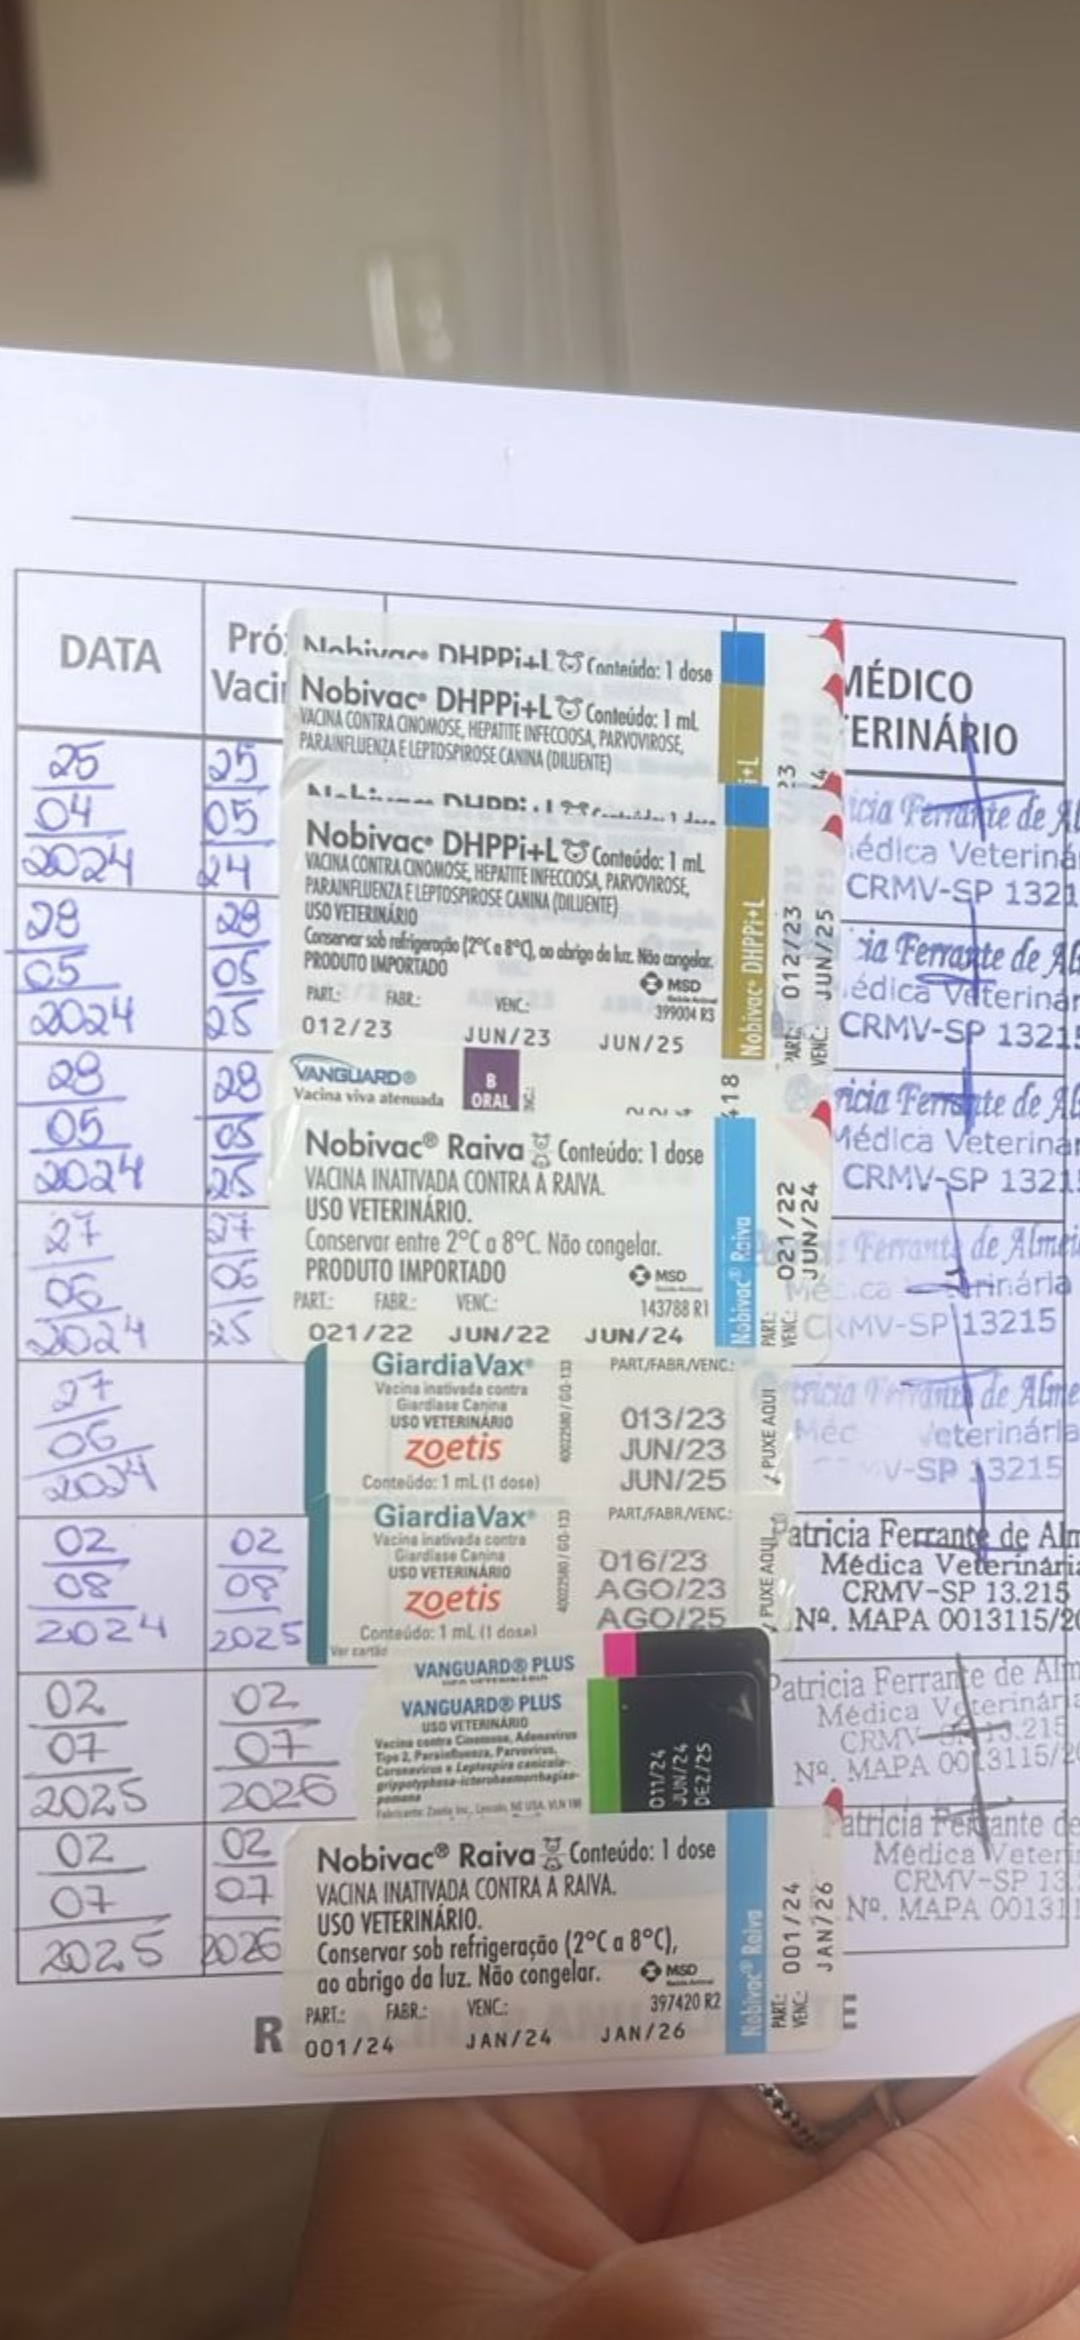 DATA
Vaci
MÉDICO
25
04
2024
25
05
24
DHPPi+L Conteúdo: 1 dose
Nobivac® DHPPi+L Conteúdo: 1 mL
VACINA CONTRA CINOMOSE, HEPATITE INFECCIOSA, PARVOVIROSE,
PARAINFLUENZA E LEPTOSPIROSE CANINA (DILUENTE)
Ferrante de
Médica
CRMV-SP
28
05
2024
28
05
25
Nobivac® DHPPi+L Conteúdo: 1 mL
VACINA CONTRA CINOMOSE, HEPATITE INFECCIOSA, PARVOVIROSE,
PARAINFLUENZA E LEPTOSPIROSE CANINA (DILUENTE)
USO VETERINÁRIO
Conservar sob refrigeração (2°C a 8°C), ao abrigo da luz. Não congelar.
PRODUTO IMPORTADO
MSD
Saúde Animal
399004 R3
PART.: FABR.: VENC.:
012/23 JUN/23 JUN/25
Nobivac® DHPPi+L
PART.: 012/23
VENC.: JUN/25
Ferrante de
CRMV-SP 13215
28
05
2024
28
05
25
VANGUARD®
Vacina viva atenuada
B
ORAL
Ferrante de
Médica
CRMV-SP
27
06
2024
27
06
25
Nobivac® Raiva Conteúdo: 1 dose
VACINA INATIVADA CONTRA A RAIVA.
USO VETERINÁRIO.
Conservar entre 2°C a 8°C. Não congelar.
PRODUTO IMPORTADO
MSD
143788 R1
PART.: FABR.: VENC.:
021/22 JUN/22 JUN/24
Nobivac® Raiva
PART.: 021/22
VENC.: JUN/24
de
CRMV-SP 13215
27
06
2024
GiardiaVax®
Vacina inativada contra
Giardíase Canina
USO VETERINÁRIO
zoetis
Conteúdo: 1 mL (1 dose)
40022580 / GO-133
PART./FABR./VENC.:
013/23
JUN/23
JUN/25
PUXE AQUI
de
13215
02
08
2024
02
08
2025
GiardiaVax®
Vacina inativada contra
Giardíase Canina
USO VETERINÁRIO
zoetis
Conteúdo: 1 mL (1 dose)
Ver cartão
40022580 / GO-133
PART./FABR./VENC.:
016/23
AGO/23
AGO/25
PUXE AQUI
Patricia Ferrante de
Médica Veterinária
CRMV-SP 13.215
Nº. MAPA 0013115/
02
07
2025
02
07
2026
VANGUARD® PLUS
VANGUARD® PLUS
USO VETERINÁRIO
Vacina contra Cinomose, Adenovírus
Tipo 2, Parainfluenza, Parvovírus,
Coronavírus e Leptospira canicola-
grippotyphosa-icterohaemorrhagiae-
pomona
011/24
JUN/24
DEZ/25
Patricia Ferrante de
Médica Veterinária
Nº. MAPA 0013115/
02
07
2025
02
07
2026
Nobivac® Raiva Conteúdo: 1 dose
VACINA INATIVADA CONTRA A RAIVA.
USO VETERINÁRIO.
Conservar sob refrigeração (2°C a 8°C),
ao abrigo da luz. Não congelar.
MSD
Saúde Animal
397420 R2
PART.: FABR.: VENC.:
001/24 JAN/24 JAN/26
Nobivac® Raiva
PART.: 001/24
VENC.: JAN/26
Ferrante de
Médica
CRMV-SP
Nº. MAPA